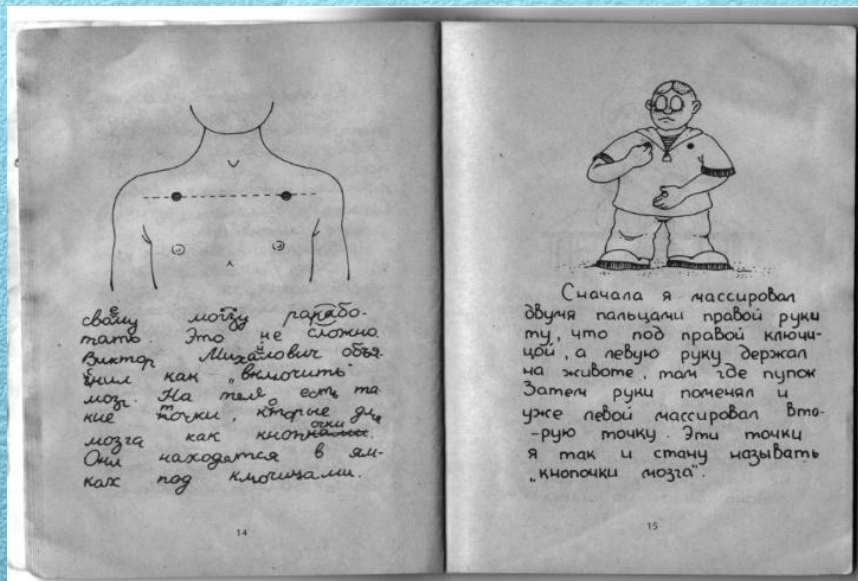 своему мозгу рабо-
тать. Это не сложно.
Виктор Михайлович объя-
снил как „включить"
мозг. На теле есть та
кие точки, которые для
мозга как кнопочки.
Они находятся в ям-
ках под ключицами.
14
Сначала я массировал
двумя пальцами правой руки
ту, что под правой ключи-
цой, а левую руку держал
на животе, там где пупок
Затем руки поменял и
уже левой массировал вто-
-рую точку. Эти точки
я так и стану называть
„кнопочки мозга".
15